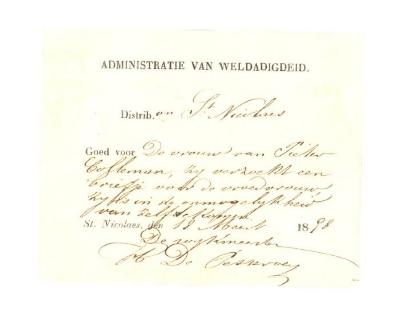 ADMINISTRATIE VAN WELDADIGDEID.
Distrib. on St Nicolaes
Goed voor De vrouw van Pieter
zy verzoekt een
briefje voor de vroedvrouw
zynde in de onmogelykheid
van zelf te
St. Nicolaes, den 18 Maert 1898
De wykmeester
De